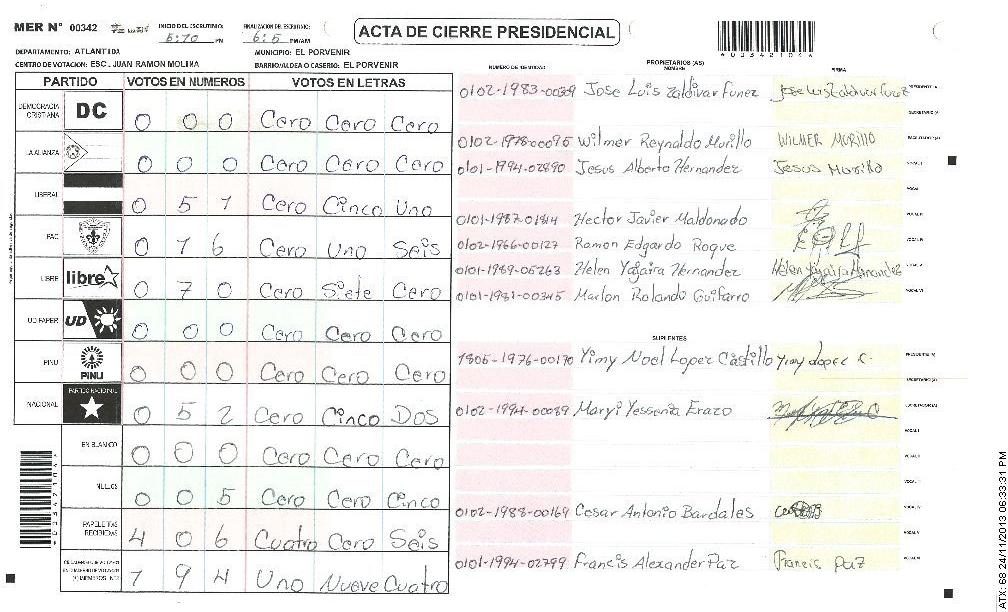 MER N° 00342
INICIO DEL ESCRUTINIO: 5:10 PM
FINALIZACION DEL ESCRUTINIO: 6:5 PM/AM
ACTA DE CIERRE PRESIDENCIAL
DEPARTAMENTO: ATLANTIDA
MUNICIPIO: EL PORVENIR
CENTRO DE VOTACION: ESC. JUAN RAMON MOLINA
BARRIO/ALDEA O CASERIO: EL PORVENIR
PARTIDO VOTOS EN NUMEROS VOTOS EN LETRAS
DEMOCRACIA CRISTIANA DC 0 0 0 Cero Cero Cero
LA ALIANZA 0 0 0 Cero Cero Cero
LIBERAL 0 5 1 Cero Cinco Uno
PAC 0 1 6 Cero Uno Seis
LIBRE libre 0 7 0 Cero Siete Cero
UD FAPER UD 0 0 0 Cero Cero Cero
PINU PINU 0 0 0 Cero Cero Cero
NACIONAL PARTIDO NACIONAL 0 5 2 Cero Cinco Dos
EN BLANCO 0 0 0 Cero Cero Cero
NULOS 0 0 5 Cero Cero Cinco
PAPELETAS RECIBIDAS 4 0 6 Cuatro Cero Seis
1 9 4 Uno Nueve Cuatro
NUMERO DE IDENTIDAD PROPIETARIOS (AS) NOMBRE FIRMA
0102-1983-00309 Jose Luis Zaldivar Funez Jose Luis Zaldivar Funez PRESIDENTE (A)
SECRETARIO (A)
0102-1978-00095 Wilmar Reynaldo Murillo WILMER MURILLO ESCRUTADOR (A)
0101-1994-02890 Jesus Alberto Hernandez Jesus Murillo VOCAL I
VOCAL II
0101-1987-01814 Hector Javier Maldonado VOCAL III
0102-1966-00127 Ramon Edgardo Roque VOCAL IV
0101-1989-03263 Helen Yajaira Hernandez Helen Yajaira Hernandez VOCAL V
0101-1981-00345 Marlon Rolando Guifarro VOCAL VI
SUPLENTES
1805-1976-00170 Yimy Noel Lopez Castillo Yimy Lopez C. PRESIDENTE (A)
SECRETARIO (A)
0102-1994-00089 Maryi Yessenia Erazo ESCRUTADOR (A)
VOCAL I
VOCAL II
VOCAL III
0102-1988-00169 Cesar Antonio Bardales VOCAL IV
VOCAL V
0101-1994-02799 Francis Alexander Paz Francis Paz VOCAL VI
ATX: 68 24/11/2013 06:33:31 PM